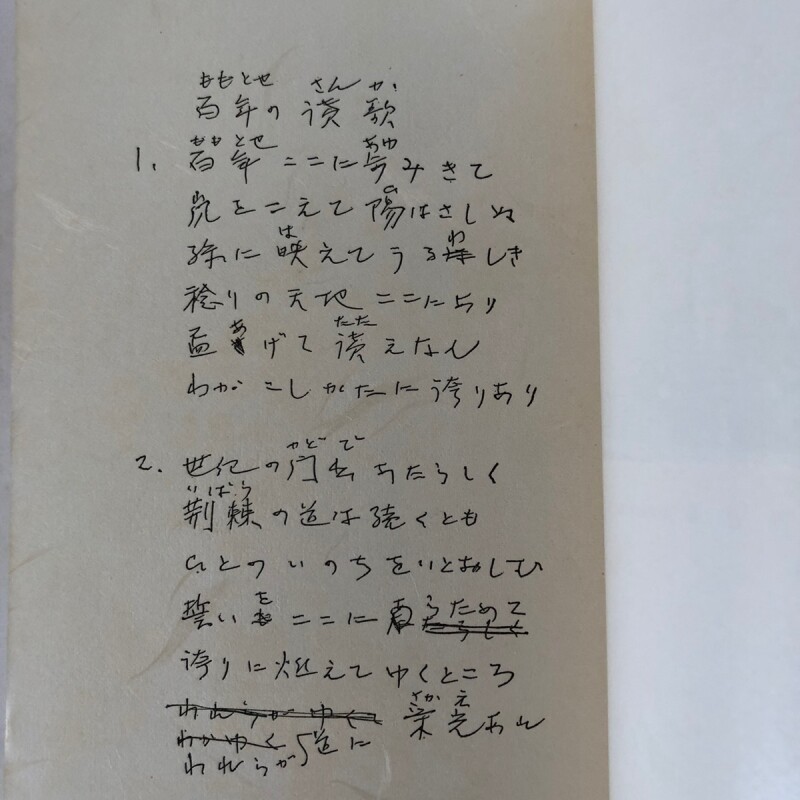 ももとせ さんか
百年の讃歌
ももとせ あゆ
1. 百年ここに歩みきて
ひ
嵐をこえて陽はさしぬ
は わ
緑に映えてうるしき
稔りの天地ここに
あ たた
盃げて讃えなん
わがこしかたに誇りあり
かどで
2. 世紀の門出あたらしく
いばら
荊棘の道は続くとも
ひとのいのちをいとおしむ
を らためて
誓いここに たらしく
誇りに燃えてゆくところ
さかえ
われらがゆく 栄光あれ
わがゆく 道に
われらが